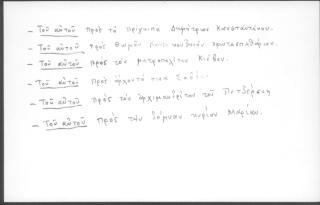 — Τοῦ αὐτοῦ πρὸς τὸ πρίγκιπα Δημήτριον Κωνσταντῖνον.
— Τοῦ αὐτοῦ πρὸς Θωμᾶν πρωτοσπαθάριον.
— Τοῦ αὐτοῦ πρὸς τὸν μητροπολίτην Κιέβου.
— Τοῦ αὐτοῦ πρὸς ἄρχοντά τινα
— Τοῦ αὐτοῦ πρὸς τὸν ἀρχιμανδρίτην τοῦ
— Τοῦ αὐτοῦ πρὸς τὴν δόμναν κυρίαν Μαρίαν.